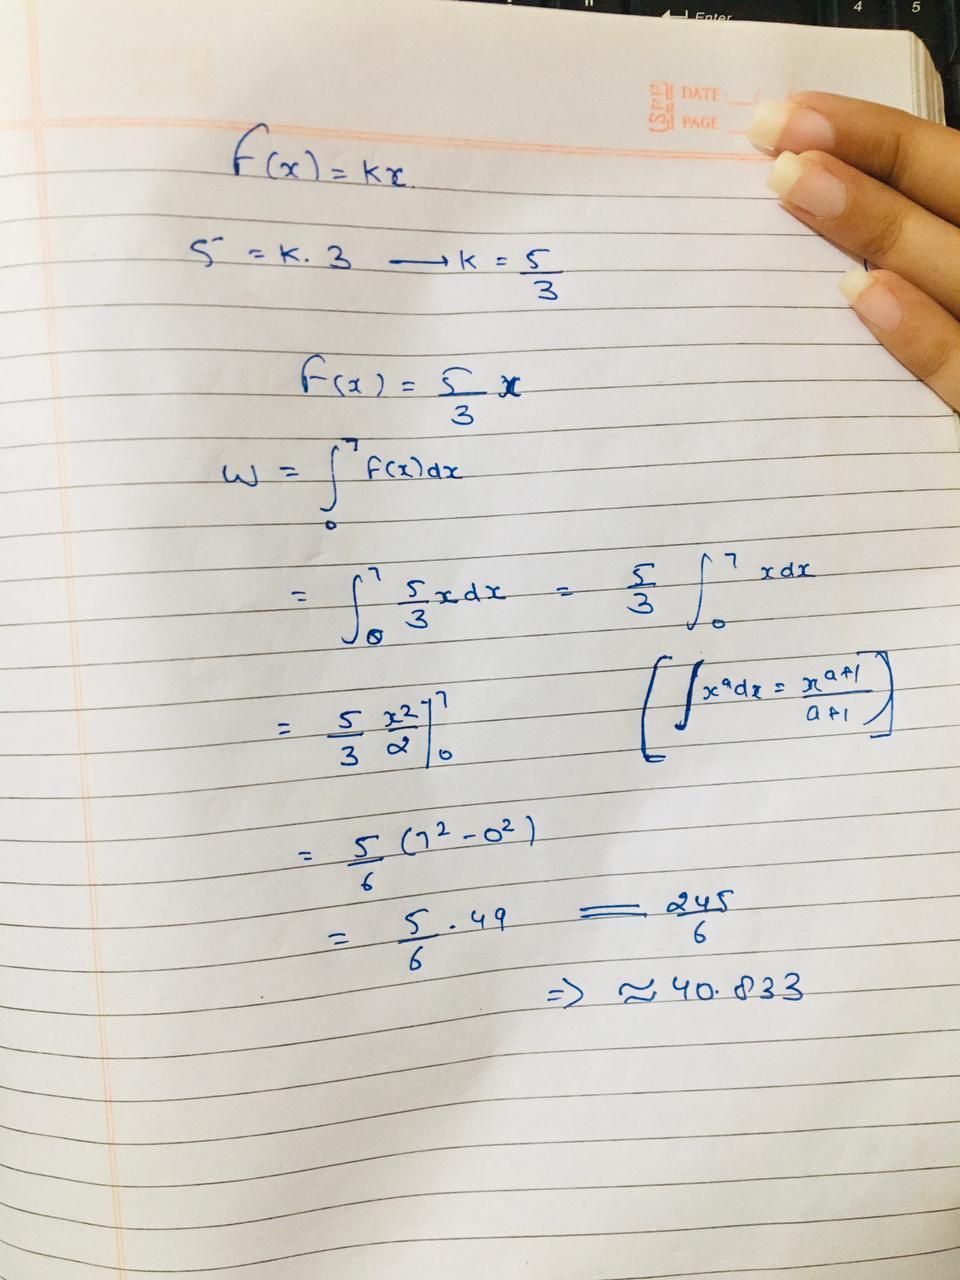 4 5
Enter
SPP DATE: __/ /
PAGE
F(x) = kx
5 = k. 3 ⟶ k = 5/3
F(x) = 5/3 x
W = ∫₀⁷ F(x)dx
= ∫₀⁷ 5/3 x dx = 5/3 ∫₀⁷ x dx
= 5/3 x²/2 |₀⁷ [∫xᵃdx = xᵃ⁺¹/a+1]
= 5/6 (7² - 0²)
= 5/6 . 49 = 245/6
=> ≈ 40.833